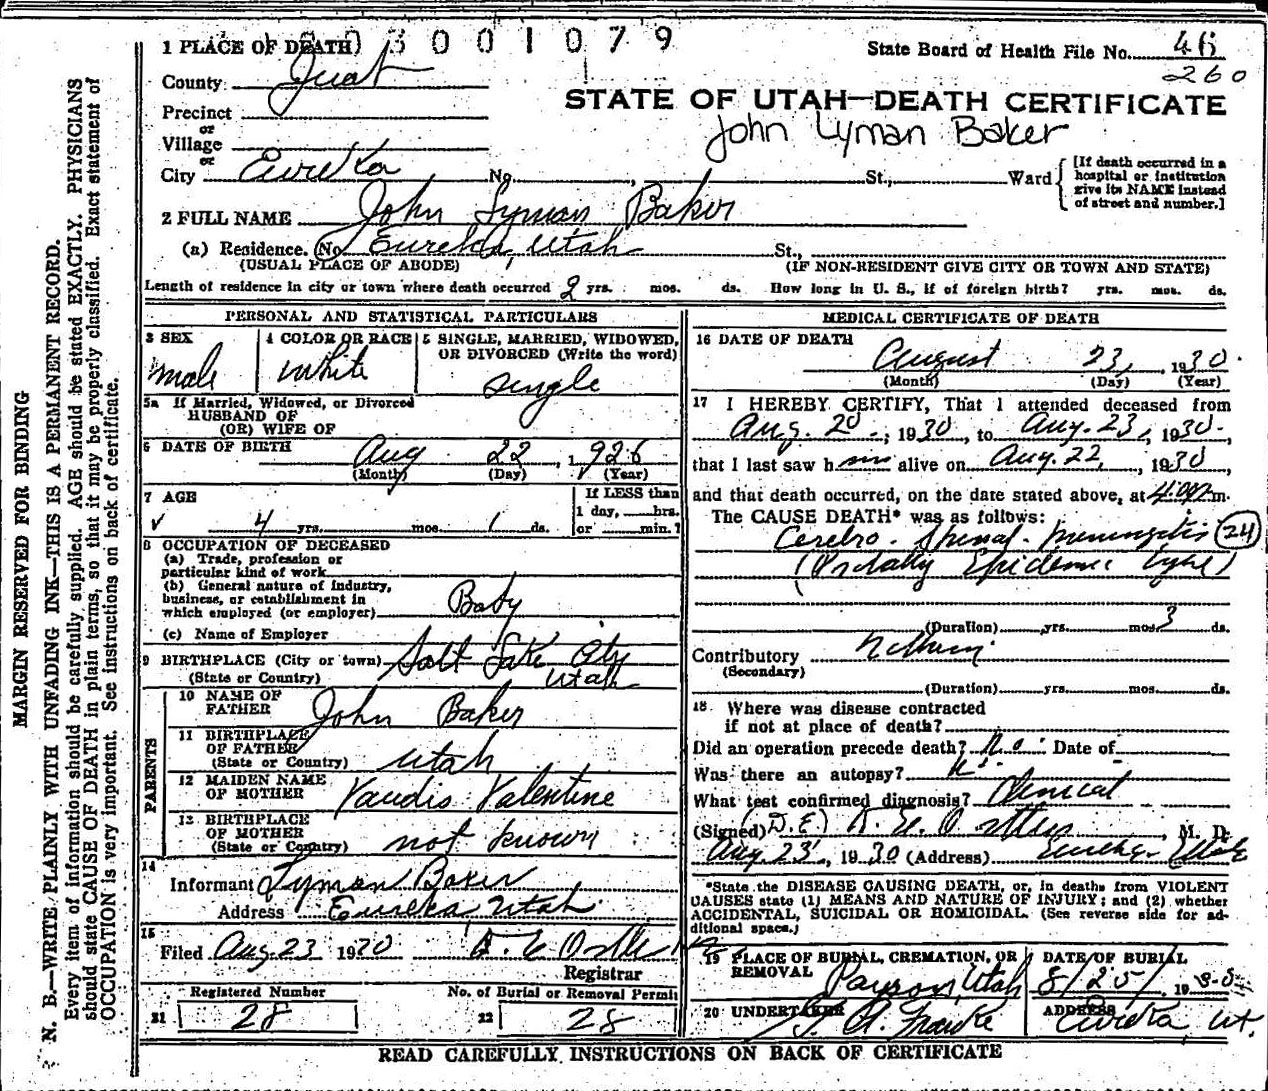 3 0 0 0 1 0 7 9
1 PLACE OF DEATH
State Board of Health File No. 46
260
County Juab
STATE OF UTAH—DEATH CERTIFICATE
John Lyman Baker
Precinct
or
Village
or
City Eureka No. , St., Ward
[If death occurred in a
hospital or institution
give its NAME instead
of street and number.]
2 FULL NAME John Lyman Baker
(a) Residence. (No. Eureka, Utah St.,
(USUAL PLACE OF ABODE) (IF NON-RESIDENT GIVE CITY OR TOWN AND STATE)
Length of residence in city or town where death occurred 2 yrs. mos. ds. How long in U. S., if of foreign birth? yrs. mos. ds.
PERSONAL AND STATISTICAL PARTICULARS
3 SEX
male
4 COLOR OR RACE
White
5 SINGLE, MARRIED, WIDOWED,
OR DIVORCED (Write the word)
single
5a If Married, Widowed, or Divorced
HUSBAND OF
(OR) WIFE OF
6 DATE OF BIRTH Aug 22, 1926
(Month) (Day) (Year)
7 AGE
4 yrs. mos. 1 ds.
If LESS than
1 day, hrs.
or min.?
8 OCCUPATION OF DECEASED
(a) Trade, profession or
particular kind of work
(b) General nature of industry,
business, or establishment in
which employed (or employer) Baby
(c) Name of Employer
9 BIRTHPLACE (City or town) Salt Lake City
(State or Country) Utah
PARENTS
10 NAME OF
FATHER John Baker
11 BIRTHPLACE
OF FATHER
(State or Country) Utah
12 MAIDEN NAME
OF MOTHER Vaudis Valentine
13 BIRTHPLACE
OF MOTHER
(State or Country) not known
14
Informant Lyman Baker
Address Eureka Utah
15
Filed Aug. 23 1930
Registrar
Registered Number
21 28
No. of Burial or Removal Permit
22 28
MEDICAL CERTIFICATE OF DEATH
16 DATE OF DEATH
August 23, 1930.
(Month) (Day) (Year)
17 I HEREBY CERTIFY, That I attended deceased from
Aug. 20, 1930, to Aug. 23, 1930.
that I last saw him alive on Aug. 22, 1930,
and that death occurred, on the date stated above, at m.
The CAUSE DEATH* was as follows:
Cerebro-Spinal-meningitis (24)
(Probably Epidemic type)
(Duration) yrs. mos. 3 ds.
Contributory
(Secondary)
(Duration) yrs. mos. ds.
18 Where was disease contracted
if not at place of death?
Did an operation precede death? No. Date of
Was there an autopsy?
What test confirmed diagnosis? Clinical
(Signed) , M. D.
Aug. 23, 1930 (Address) Eureka Utah
*State the DISEASE CAUSING DEATH, or, in deaths from VIOLENT
CAUSES state (1) MEANS AND NATURE OF INJURY; and (2) whether
ACCIDENTAL, SUICIDAL OR HOMICIDAL. (See reverse side for ad-
ditional space.)
19 PLACE OF BURIAL, CREMATION, OR
REMOVAL Payson, Utah
DATE OF BURIAL
8/25/ 19
20 UNDERTAKER
ADDRESS
Eureka Ut.
READ CAREFULLY INSTRUCTIONS ON BACK OF CERTIFICATE
MARGIN RESERVED FOR BINDING
N. B.—WRITE PLAINLY WITH UNFADING INK—THIS IS A PERMANENT RECORD.
Every item of information should be carefully supplied. AGE should be stated EXACTLY. PHYSICIANS
should state CAUSE OF DEATH in plain terms, so that it may be properly classified. Exact statement of
OCCUPATION is very important. See instructions on back of certificate.